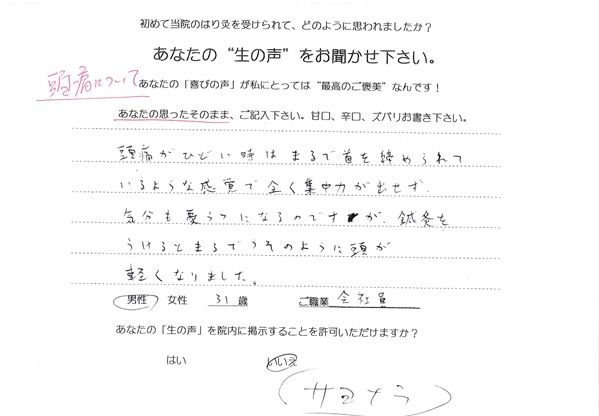 初めて当院のはり灸を受けられて、どのように思われましたか？
あなたの“生の声”をお聞かせ下さい。
頭痛について
あなたの「喜びの声」が私にとっては“最高のご褒美”なんです！
あなたの思ったそのまま、ご記入下さい。甘口、辛口、ズバリお書き下さい。
頭痛がひどい時はまるで首を締められて
いるような感覚で全く集中力が出せず、
気分も憂うつになるのですが、鍼灸を
うけるとまるでうそのように頭が
軽くなりました。
男性 女性 31歳 ご職業 会社員
あなたの「生の声」を院内に掲示することを許可いただけますか？
はい いいえ